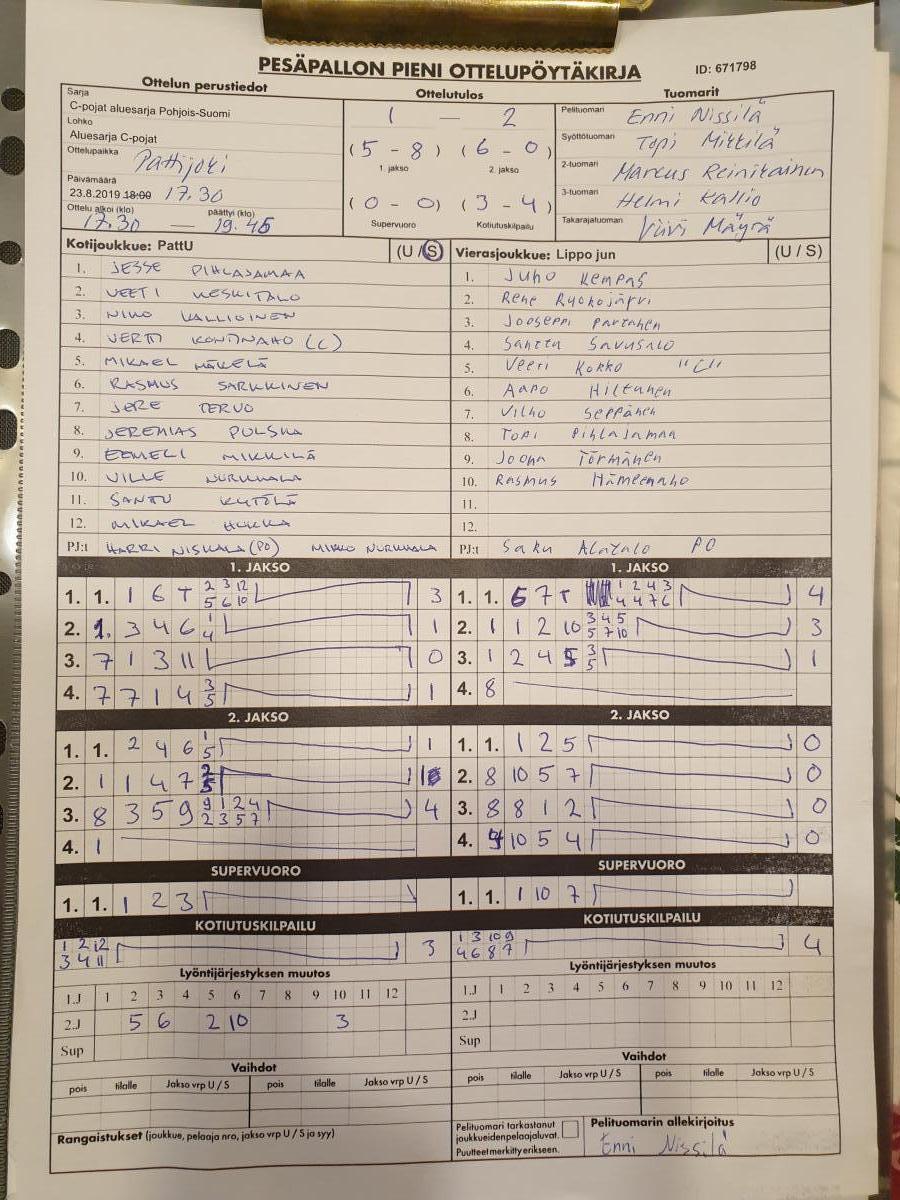 PESÄPALLON PIENI OTTELUPÖYTÄKIRJA
ID: 671798
Ottelun perustiedot
Sarja
C-pojat aluesarja Pohjois-Suomi
Lohko
Aluesarja C-pojat
Ottelupaikka Pattijoki
Päivämäärä
23.8.2019 18:00 17.30
Ottelu alkoi (klo) päättyi (klo)
17.30 — 19.45
Ottelutulos
1 — 2
(5 - 8) (6 - 0)
1. jakso 2. jakso
(0 - 0) (3 - 4)
Supervuoro Kotiutuskilpailu
Tuomarit
Pelituomari Enni Nissilä
Syöttötuomari Topi Mikkilä
2-tuomari Marcus Reinikainen
3-tuomari Helmi Kallio
Takarajatuomari Viivi Mäyrä
Kotijoukkue: PattU (U / S)
1. JESSE PIHLAJAMAA
2. VEETI KESKITALO
3. NIKO KALLIOINEN
4. VERTTI KONTINAHO (C)
5. MIKAEL MÄKELÄ
6. RASMUS SARKKINEN
7. JERE TERVO
8. JEREMIAS PULSKA
9. EEMELI MIKKILÄ
10. VILLE NURKKALA
11. SANTU KYTÖLÄ
12. MIKAEL HUKKA
PJ:t HARRI NISKALA (PO) MIKKO NURKKALA
Vierasjoukkue: Lippo jun (U / S)
1. Juho Kempas
2. Rene Ruokojärvi
3. Jooseppi Partanen
4. Santtu Savusalo
5. Veeti Kokko "C"
6. Aapo Hiltunen
7. Vilho Seppänen
8. Topi Pihlajamaa
9. Joona Törmänen
10. Rasmus Hämeenaho
11.
12.
PJ:t Saku Alatalo PO
1. JAKSO
1. 1. 1 6 T 2 3 12 3
5 6 10
2. 1. 3 4 6 1 1
4
3. 7 1 3 11 0
4. 7 7 1 4 3 1
5
1. JAKSO
1. 1. 6 7 T 1 2 4 3 4
4 4 7 6
2. 1 1 2 10 3 4 5 3
5 7 10
3. 1 2 4 5 3 1
5
4. 8
2. JAKSO
1. 1. 2 4 6 1 1
5
2. 1 1 4 7 2 1
5
3. 8 3 5 9 9 1 2 4 4
2 3 5 7
4. 1
2. JAKSO
1. 1. 1 2 5 0
2. 8 10 5 7 0
3. 8 8 1 2 0
4. 9 10 5 4 0
SUPERVUORO
1. 1. 1 2 3
SUPERVUORO
1. 1. 1 10 7
KOTIUTUSKILPAILU
1 2 12 3
3 4 11
KOTIUTUSKILPAILU
1 3 10 9 4
4 6 8 7
Lyöntijärjestyksen muutos
1.J 1 2 3 4 5 6 7 8 9 10 11 12
2.J 5 6 2 10 3
Sup
Lyöntijärjestyksen muutos
1.J 1 2 3 4 5 6 7 8 9 10 11 12
2.J
Sup
Vaihdot
pois tilalle Jakso vrp U / S pois tilalle Jakso vrp U / S
Vaihdot
pois tilalle Jakso vrp U / S pois tilalle Jakso vrp U / S
Rangaistukset (joukkue, pelaaja nro, jakso vrp U / S ja syy)
Pelituomari tarkastanut
joukkueidenpelaajaluvat.
Puutteet merkitty erikseen.
Pelituomarin allekirjoitus
Enni Nissilä